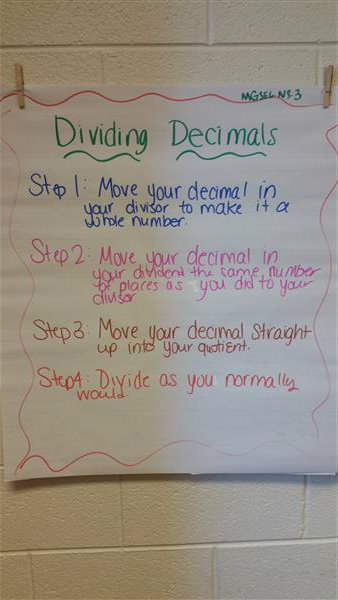 MGSE6.NS.3
Dividing Decimals
Step 1: Move your decimal in
your divisor to make it a
whole number.
Step 2: Move your decimal in
your dividend the same number
of places as you did to your
divisor.
Step 3: Move your decimal straight
up into your quotient.
Step 4: Divide as you normally
would.